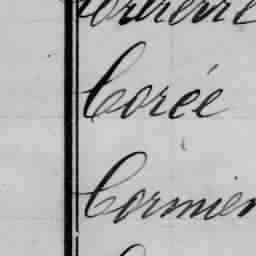 Corée
Cormier